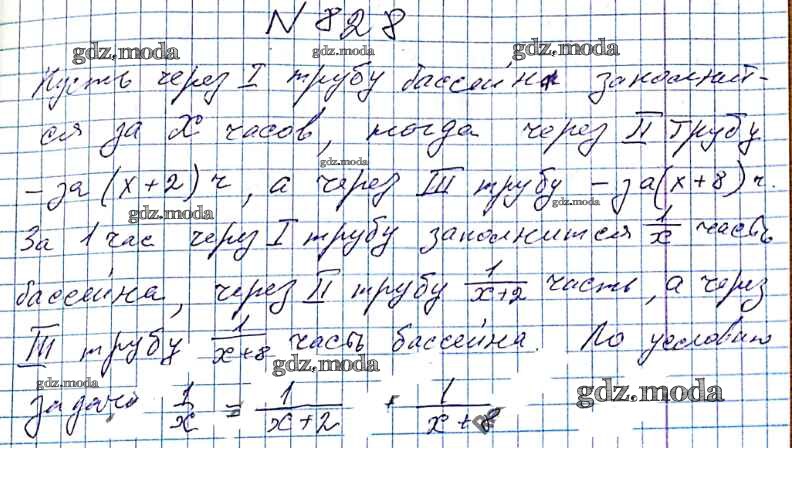 N 828
gdz.moda gdz.moda gdz.moda
Пусть через I трубу бассейн заполнит-
ся за x часов, тогда через II трубу
gdz.moda
- за (x+2) ч, а через III трубу - за (x+8) ч.
gdz.moda gdz.moda
За 1 час через I трубу заполнится 1/x часть
бассейна, через II трубу 1/(x+2) часть, а через
III трубу 1/(x+8) часть бассейна. По условию
gdz.moda gdz.moda gdz.moda
задачи 1/x = 1/(x+2) + 1/(x+8)